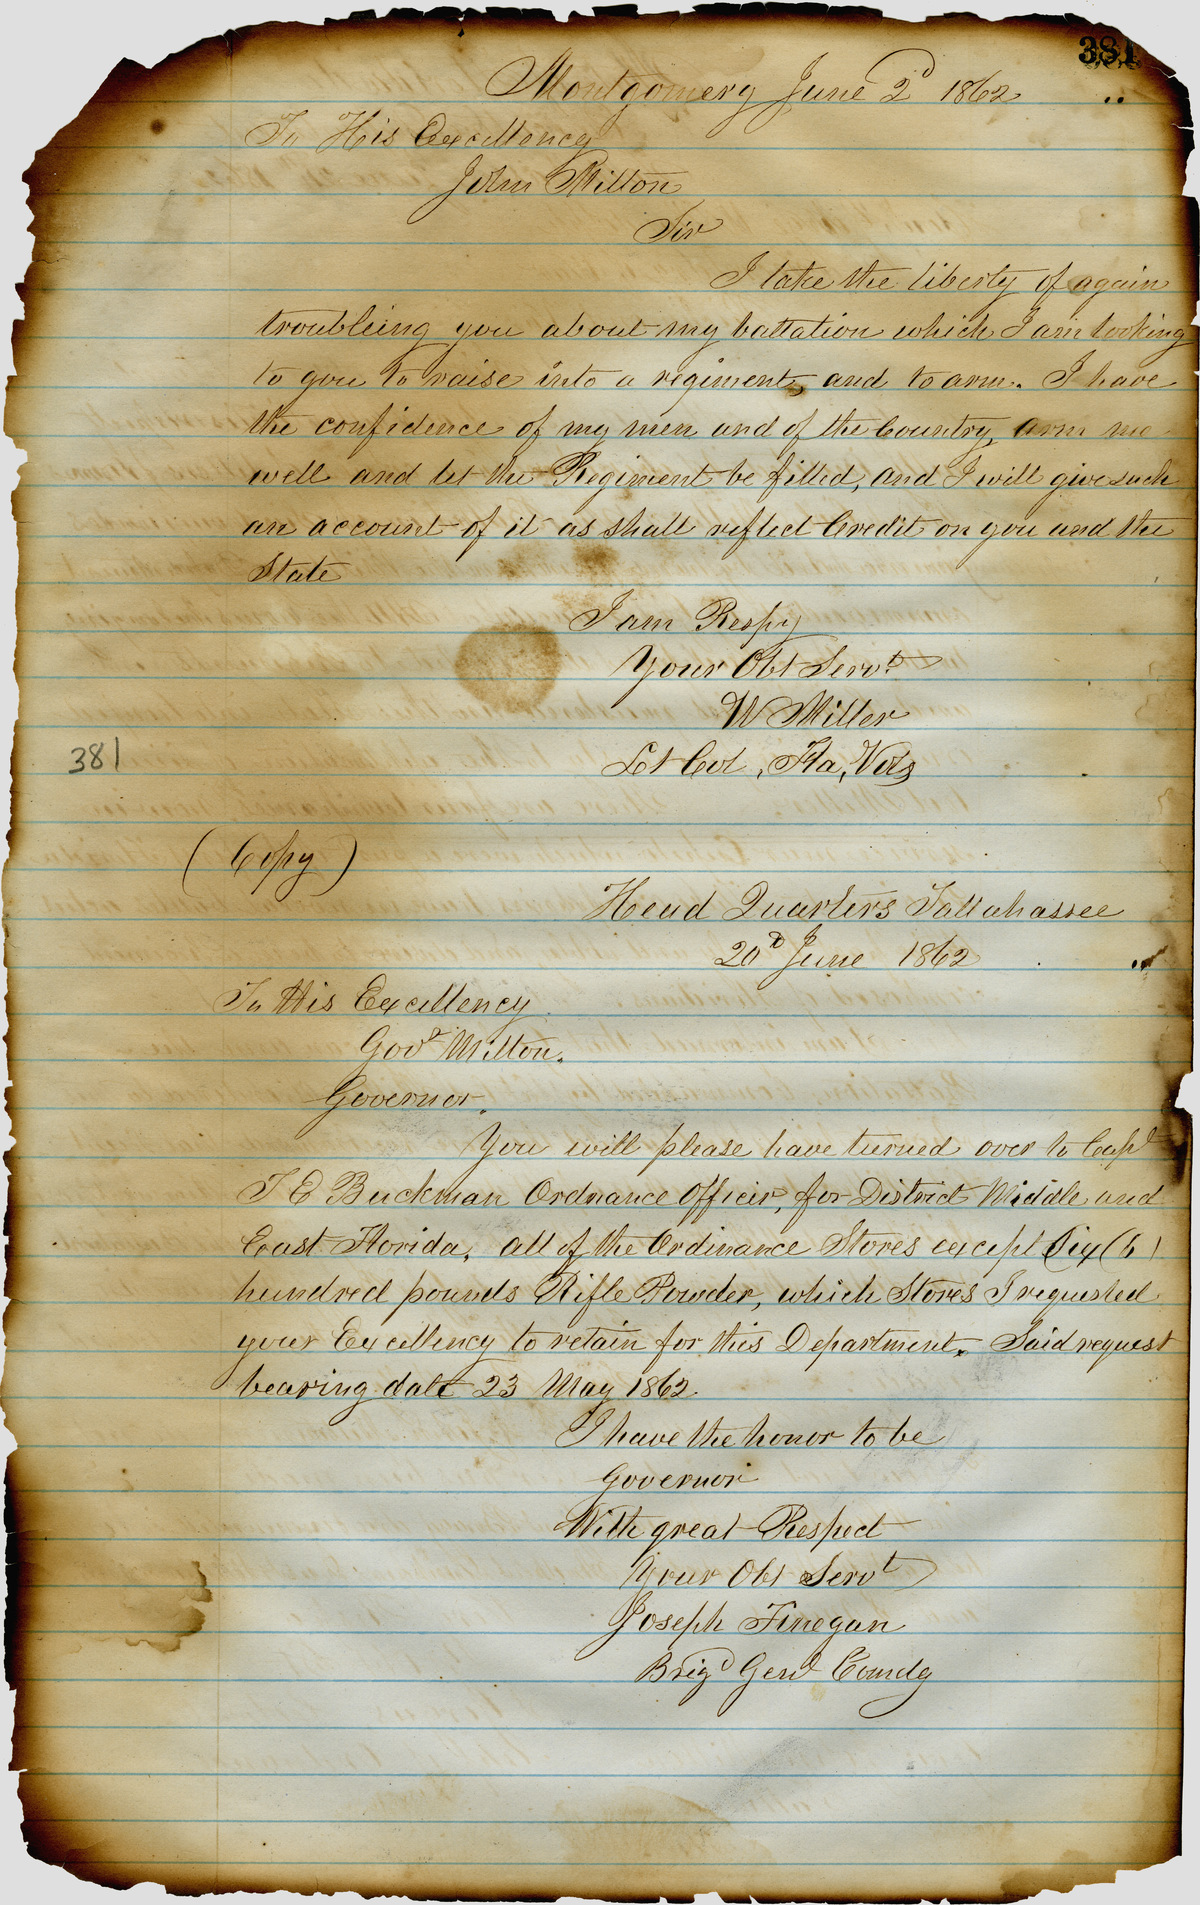 381
Montgomery June 2d 1862
To His Excellency
John Milton
Sir
I take the liberty of again
troubleing you about my battalion which I am looking
to you to raise into a regiment, and to arm. I have
the confidence of my men and of the Country, arm me
well and let the Regiment be filled, and I will give such
an account of it as shall reflect Credit on you and the
State
I am Respy
Your Obt Servt
W Miller
Lt Col, Fla, Vols
381
(Copy)
Head Quarters Tallahassee
20th June 1862
To His Excellency
Govr Milton.
Governor.
You will please have turned over to Capt
T E Buckman Ordnance Officir, for District Middle and
East Florida, all of the Ordinance Stores except Six (6)
hundred pounds Rifle Powder, which Stores I requested
your Excellency to retain for this Department. Said request
bearing date 23 May 1862
I have the honor to be
Governor
With great Respect
Your Obt Servt
Joseph Finegan
Brigd Genl Comdg